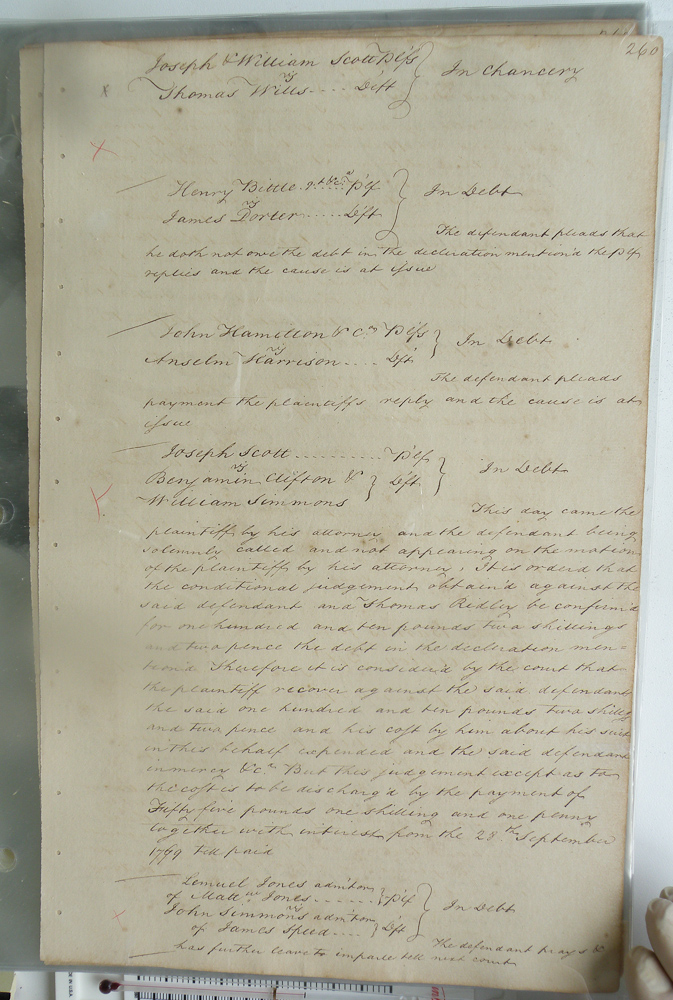 260
Joseph & William Scott Plfs } In Chancery
vs
Thomas Wills .... Deft
Henry Bittle Plf } In Debt
vs
James Porter ...... Deft
The defendant pleads that
he doth not owe the debt in the declaration mention'd the Plf
replies and the cause is at issue
John Hamilton & Co Plfs } In Debt
vs
Anselm Harrison .... Deft
The defendant pleads
payment the plaintiffs reply and the cause is at
issue
Joseph Scott ........... Plf } In Debt
vs
Benjamin Clifton & } Deft
William Simmons
This day came the
plaintiff by his attorney and the defendant being
solemnly called and not appearing on the motion
of the plaintiff by his attorney, It is orderd that
the conditional judgement obtain'd against the
said defendant and Thomas Ridley be confirm'd
for one hundred and ten pounds two shillings
and two pence the debt in the decleration men=
tion'd Therefore it is consider'd by the court that
the plaintiff recover against the said defendant
the said one hundred and ten pounds two shillgs
and two pence and his cost by him about his suit
in this behalf expended and the said defendant
in mercy &c.a But this judgement except as to
the cost is to be discharg'd by the payment of
Fifty five pounds one shilling and one penny
together with interest from the 28.th September
1799 till paid
Lemuel Jones admtor
of Matt.w Jones ....... } Plf } In Debt
vs
John Simmons admtor
of James Speed .... } Deft
The defendant prays &
has further leave to imparle till next court